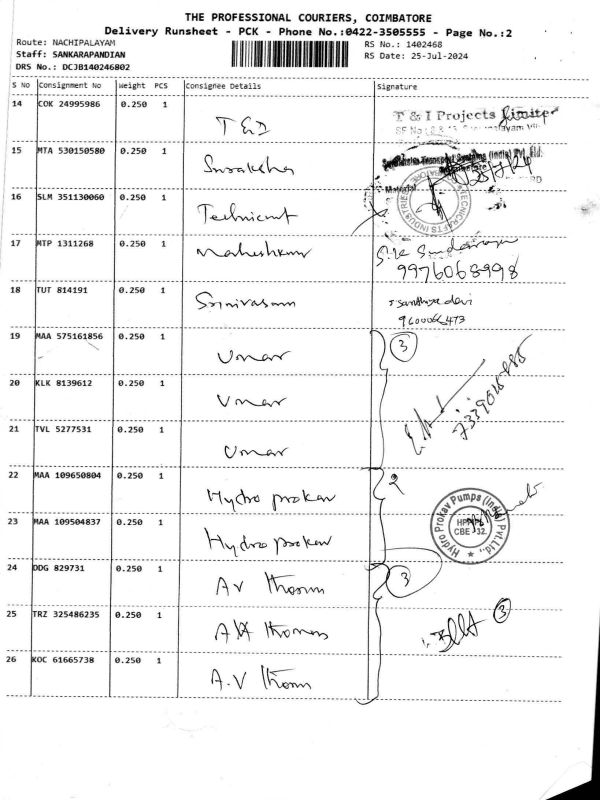 THE PROFESSIONAL COURIERS, COIMBATORE
Delivery Runsheet - PCK - Phone No.:0422-3505555 - Page No.:2
Route: NACHIPALAYAM
RS No.: 1402468
Staff: SANKARAPANDIAN
RS Date: 25-Jul-2024
DRS No.: DCJB140246802
S No Consignment No Weight PCS Consignee Details Signature
14 COK 24995986 0.250 1 T&I
T & I Projects Limited
15 MTA 530150580 0.250 1 Suraksha
16 SLM 351130060 0.250 1 Technicrat
17 MTP 1311268 0.250 1 Maheshkumar
9976068998
18 TUT 814191 0.250 1 Srinivasan
santhiya devi
19 MAA 575161856 0.250 1 Umar
3
20 KLK 8139612 0.250 1 Umar
21 TVL 5277531 0.250 1 Umar
22 MAA 109650804 0.250 1 Hydro prokav
2
23 MAA 109504837 0.250 1 Hydro prokav
Hydro Prokav Pumps (India) Pvt.Ltd.,
HPPI
CBE 32.
24 DDG 829731 0.250 1 AV Thomas
3
25 TRZ 325486235 0.250 1 AV Thomas
3
26 KOC 61665738 0.250 1 A.V Thomas